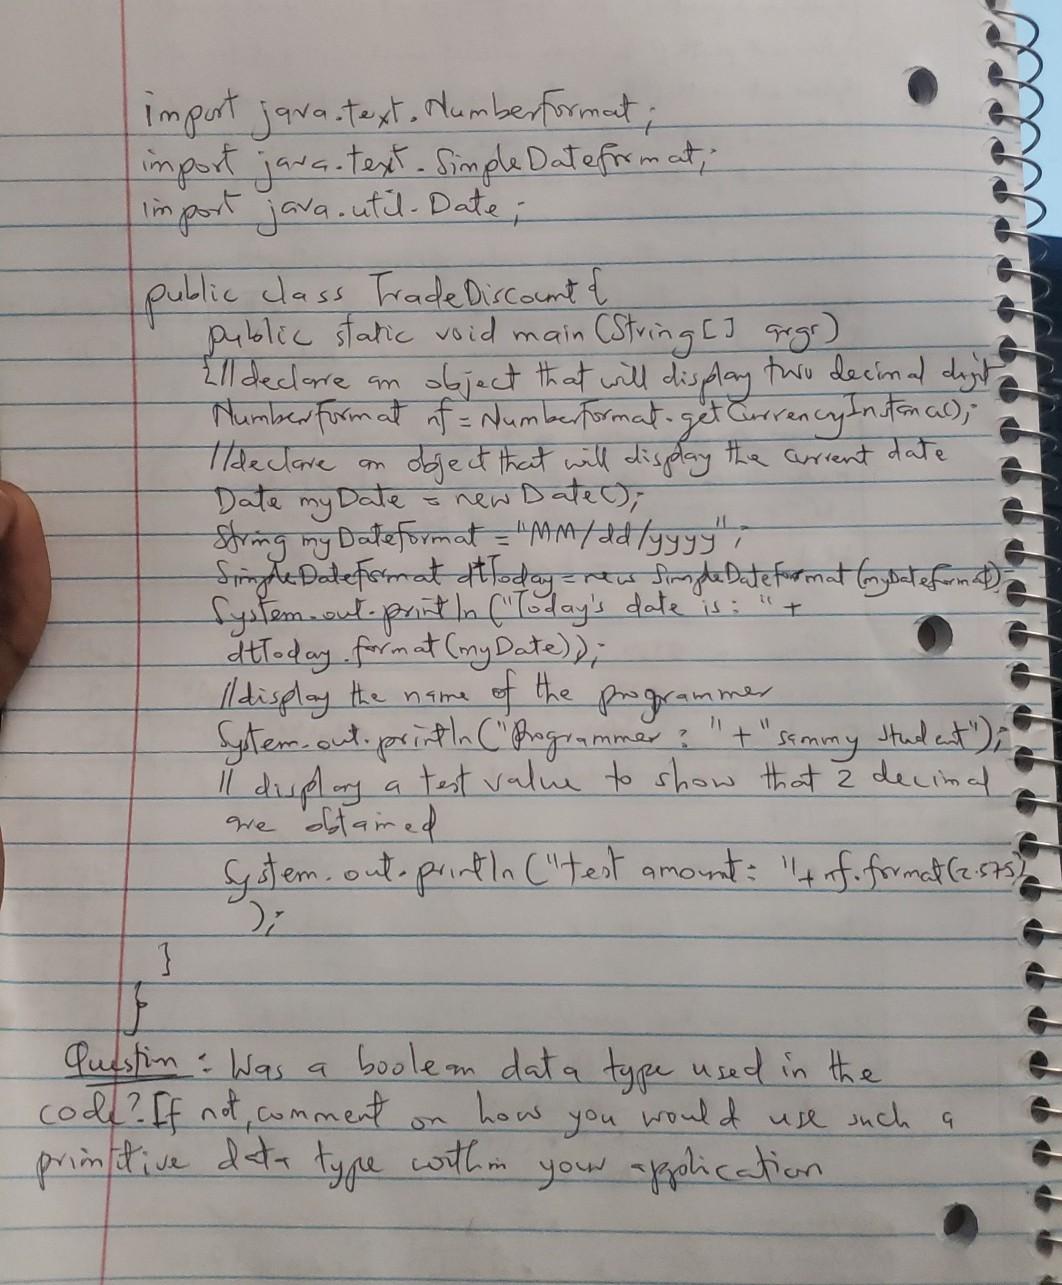 import java.text.NumberFormat;
import java.text.SimpleDateformat;
import java.util.Date;
public class TradeDiscount {
public static void main (String [] args)
{//declare an object that will display two decimal digit
Numberformat nf = Numberformat.getCurrencyInstance();
//declare an object that will display the current date
Date myDate = new Date();
String myDateformat = "MM/dd/yyyy";
SimpleDateFormat dtToday = new SimpleDateformat (myDateformat);
System.out.println ("Today's date is: " +
dtToday.format(myDate));
//display the name of the programmer
System.out.println ("Programmer : " + "sammy student");
// display a test value to show that 2 decimal
are obtained
System.out.println ("test amount: "+ nf.format(2.575)
);
}
}
Question : Was a boolean data type used in the
code? If not, comment on how you would use such a
primitive data type within your application